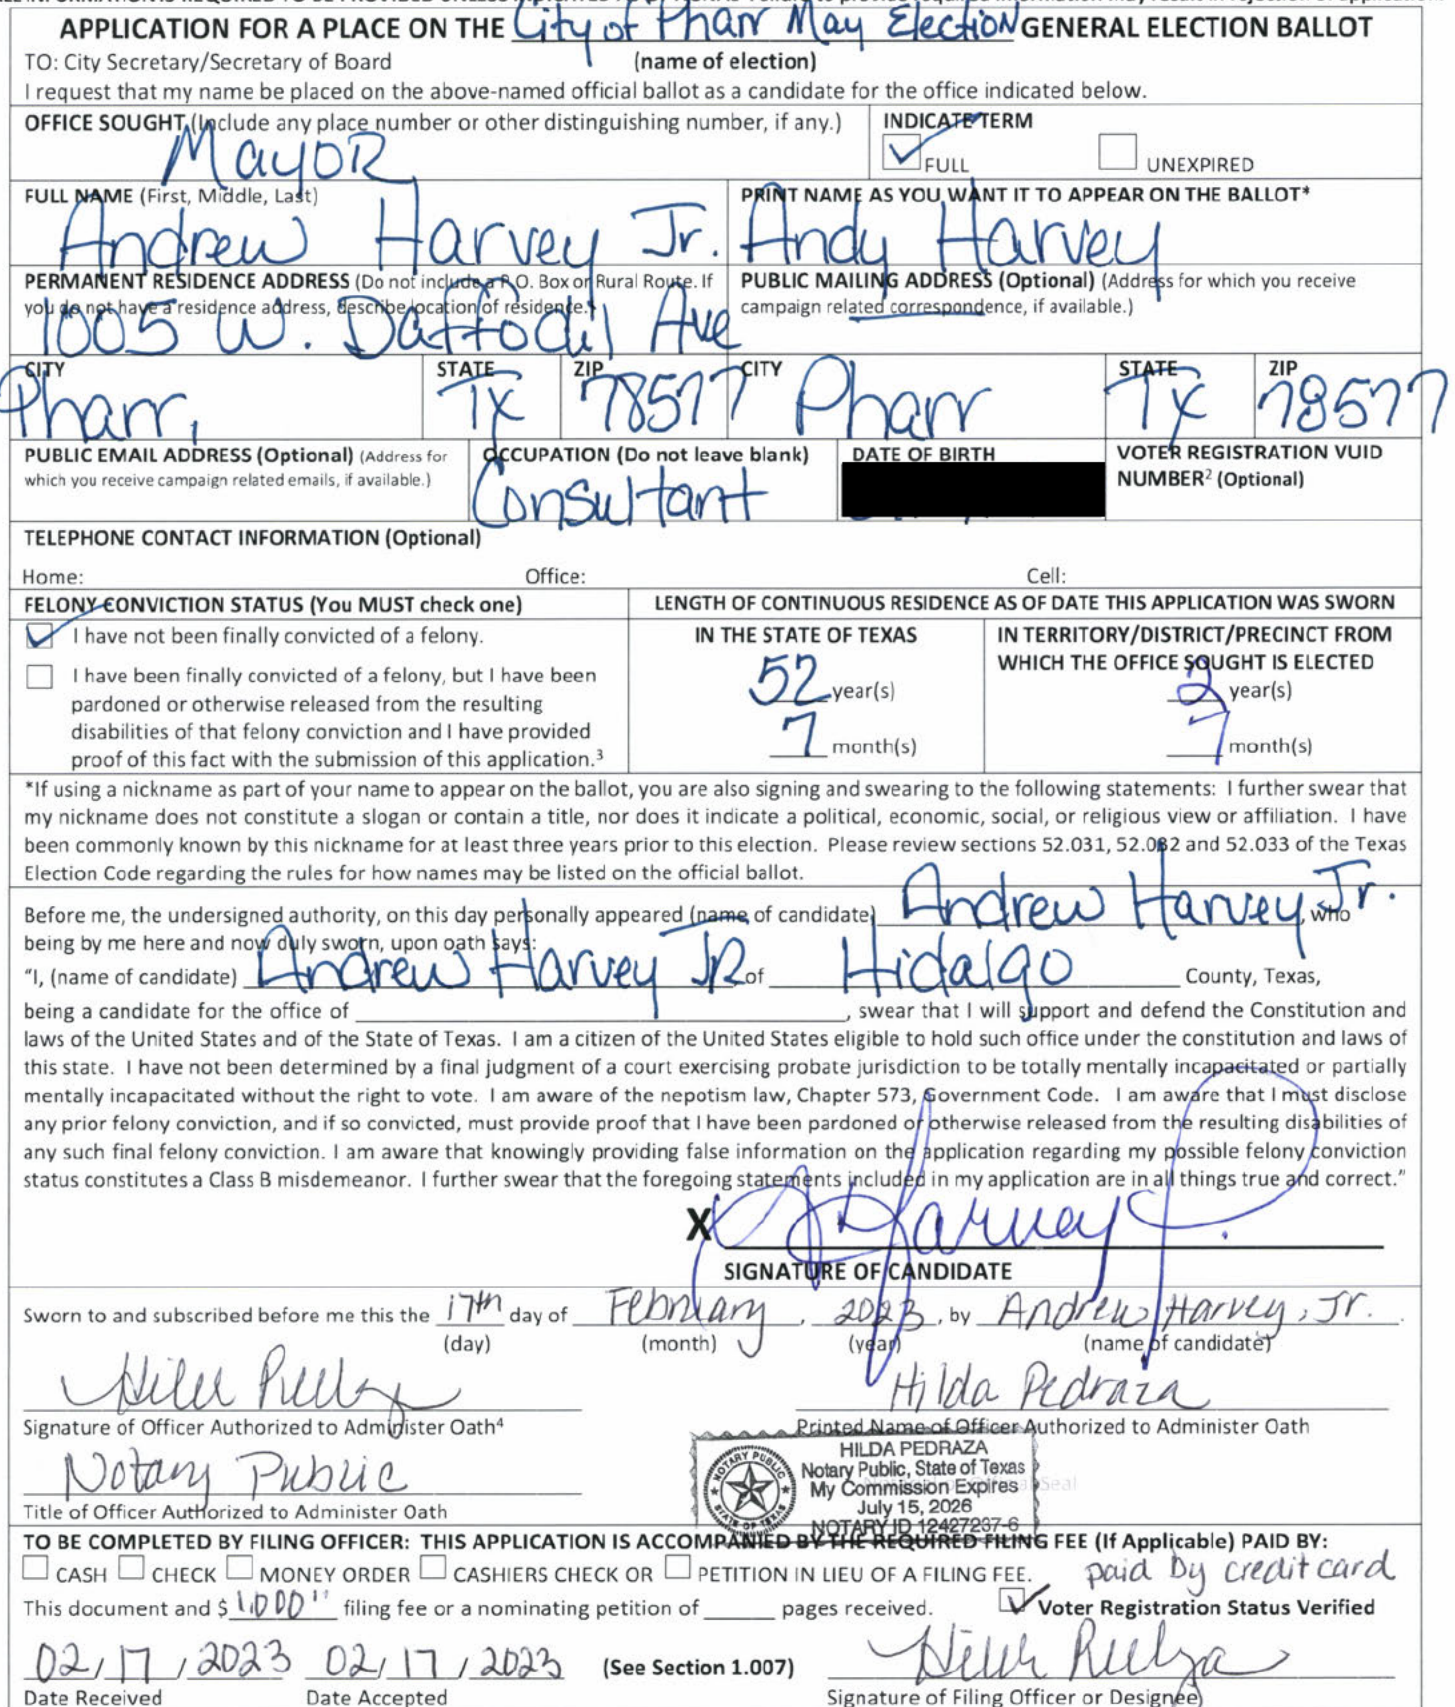 APPLICATION FOR A PLACE ON THE City of Pharr May Election GENERAL ELECTION BALLOT
TO: City Secretary/Secretary of Board (name of election)
I request that my name be placed on the above-named official ballot as a candidate for the office indicated below.
OFFICE SOUGHT (Include any place number or other distinguishing number, if any.) INDICATE TERM
Mayor FULL UNEXPIRED
FULL NAME (First, Middle, Last) PRINT NAME AS YOU WANT IT TO APPEAR ON THE BALLOT*
Andrew Harvey Jr. Andy Harvey
PERMANENT RESIDENCE ADDRESS (Do not include a P.O. Box or Rural Route. If PUBLIC MAILING ADDRESS (Optional) (Address for which you receive
you do not have a residence address, describe location of residence.) campaign related correspondence, if available.)
1005 W. Daffodil Ave
CITY STATE ZIP CITY STATE ZIP
Pharr, Tx 78577 Pharr Tx 78577
PUBLIC EMAIL ADDRESS (Optional) (Address for OCCUPATION (Do not leave blank) DATE OF BIRTH VOTER REGISTRATION VUID
which you receive campaign related emails, if available.) Consultant NUMBER² (Optional)
TELEPHONE CONTACT INFORMATION (Optional)
Home: Office: Cell:
FELONY CONVICTION STATUS (You MUST check one) LENGTH OF CONTINUOUS RESIDENCE AS OF DATE THIS APPLICATION WAS SWORN
I have not been finally convicted of a felony. IN THE STATE OF TEXAS IN TERRITORY/DISTRICT/PRECINCT FROM
WHICH THE OFFICE SOUGHT IS ELECTED
I have been finally convicted of a felony, but I have been 52 year(s) 2 year(s)
pardoned or otherwise released from the resulting
disabilities of that felony conviction and I have provided 7 month(s) 7 month(s)
proof of this fact with the submission of this application.³
*If using a nickname as part of your name to appear on the ballot, you are also signing and swearing to the following statements: I further swear that
my nickname does not constitute a slogan or contain a title, nor does it indicate a political, economic, social, or religious view or affiliation. I have
been commonly known by this nickname for at least three years prior to this election. Please review sections 52.031, 52.032 and 52.033 of the Texas
Election Code regarding the rules for how names may be listed on the official ballot.
Before me, the undersigned authority, on this day personally appeared (name of candidate) Andrew Harvey Jr. , who
being by me here and now duly sworn, upon oath says:
"I, (name of candidate) Andrew Harvey JR of Hidalgo County, Texas,
being a candidate for the office of , swear that I will support and defend the Constitution and
laws of the United States and of the State of Texas. I am a citizen of the United States eligible to hold such office under the constitution and laws of
this state. I have not been determined by a final judgment of a court exercising probate jurisdiction to be totally mentally incapacitated or partially
mentally incapacitated without the right to vote. I am aware of the nepotism law, Chapter 573, Government Code. I am aware that I must disclose
any prior felony conviction, and if so convicted, must provide proof that I have been pardoned or otherwise released from the resulting disabilities of
any such final felony conviction. I am aware that knowingly providing false information on the application regarding my possible felony conviction
status constitutes a Class B misdemeanor. I further swear that the foregoing statements included in my application are in all things true and correct."
X
SIGNATURE OF CANDIDATE
Sworn to and subscribed before me this the 17th day of February, 2023, by Andrew Harvey, Jr.
(day) (month) (year) (name of candidate)
Hilda Pedraza
Signature of Officer Authorized to Administer Oath⁴ Printed Name of Officer Authorized to Administer Oath
Notary Public
Title of Officer Authorized to Administer Oath
NOTARY PUBLIC
STATE OF TEXAS
HILDA PEDRAZA
Notary Public, State of Texas
My Commission Expires
July 15, 2026
NOTARY ID 12427237-6
TO BE COMPLETED BY FILING OFFICER: THIS APPLICATION IS ACCOMPANIED BY THE REQUIRED FILING FEE (If Applicable) PAID BY:
CASH CHECK MONEY ORDER CASHIERS CHECK OR PETITION IN LIEU OF A FILING FEE. paid by credit card
This document and $ 1,000 filing fee or a nominating petition of pages received. Voter Registration Status Verified
02/17/2023 02/17/2023 (See Section 1.007)
Date Received Date Accepted Signature of Filing Officer or Designee